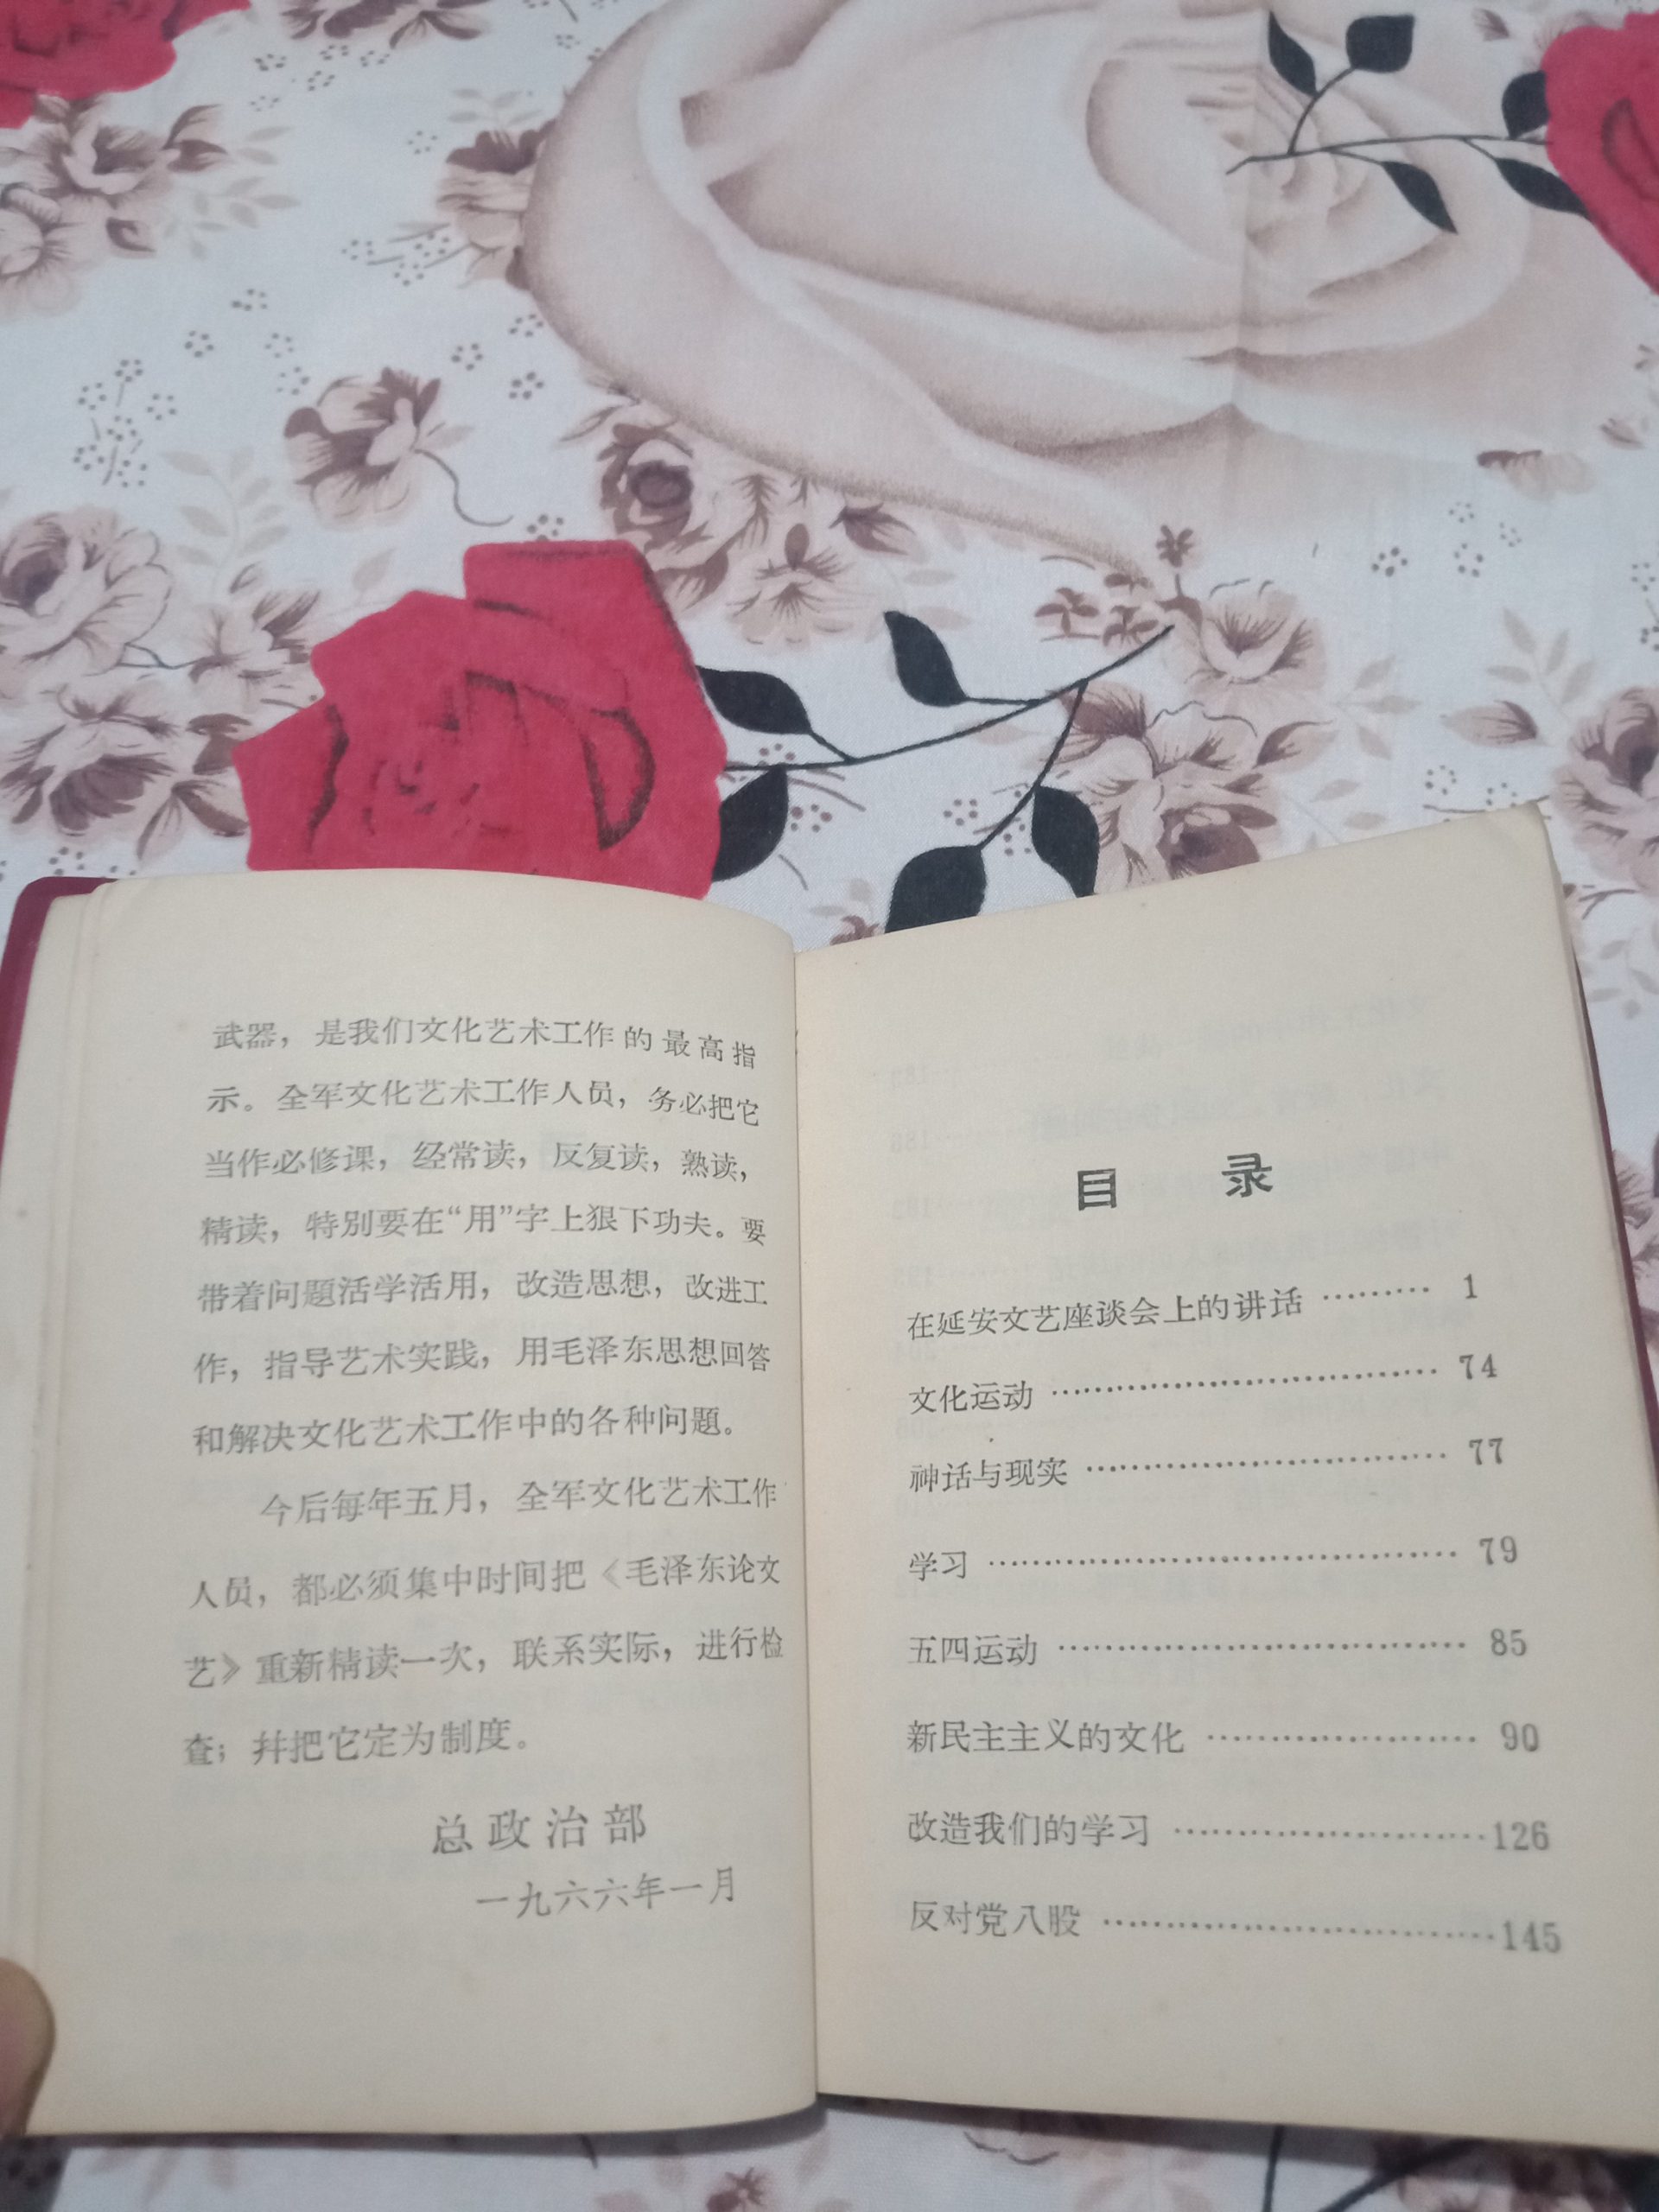 武器，是我们文化艺术工作的最高指
示。全军文化艺术工作人员，务必把它
当作必修课，经常读，反复读，熟读，
精读，特别要在“用”字上狠下功夫。要
带着问题活学活用，改造思想，改进工
作，指导艺术实践，用毛泽东思想回答
和解决文化艺术工作中的各种问题。
今后每年五月，全军文化艺术工作
人员，都必须集中时间把《毛泽东论文
艺》重新精读一次，联系实际，进行检
查；并把它定为制度。
总政治部
一九六六年一月
目 录
在延安文艺座谈会上的讲话 ……… 1
文化运动 ………………………… 74
神话与现实 ……………………… 77
学习 ……………………………… 79
五四运动 ………………………… 85
新民主主义的文化 ……………… 90
改造我们的学习 …………………126
反对党八股 ………………………145